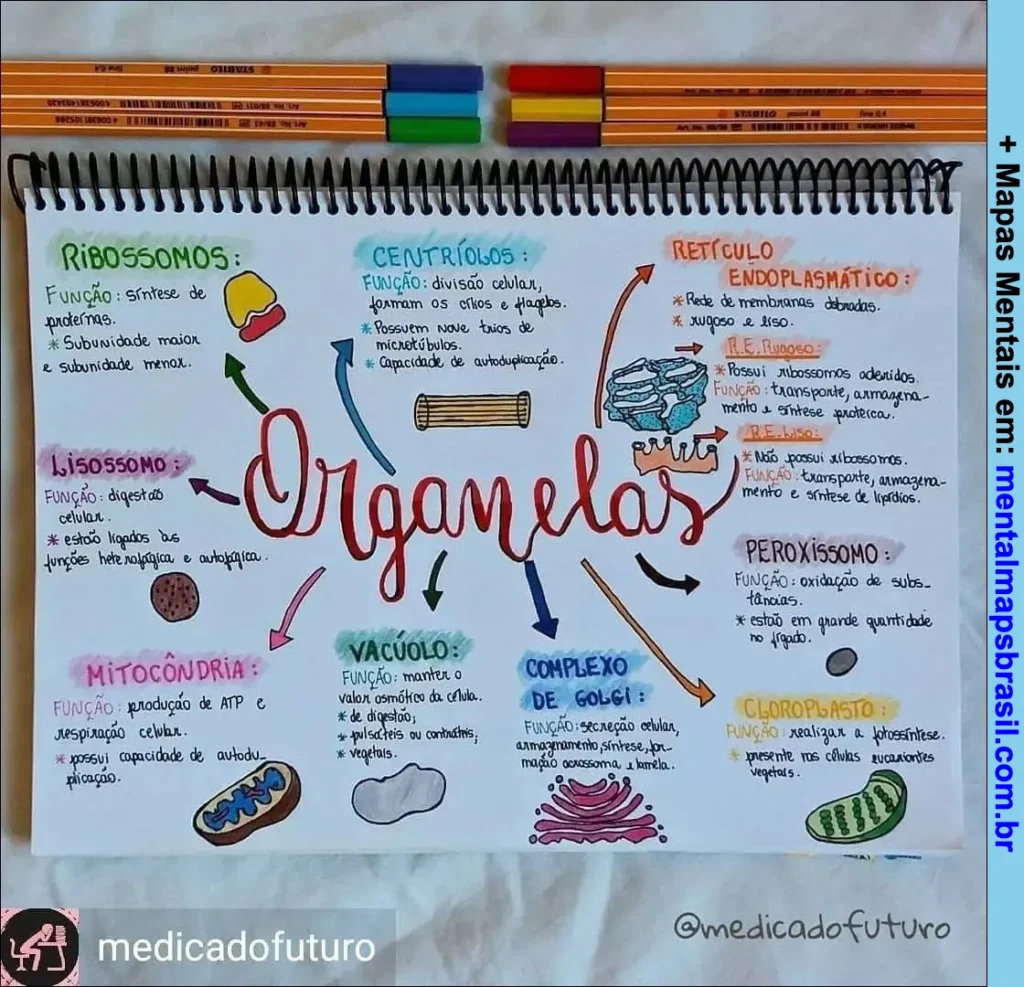 STABILO point 88 fine 0,4
STABILO point 88 fine 0,4
RIBOSSOMOS:
FUNÇÃO: síntese de
proteínas.
* Subunidade maior
e subunidade menor.
CENTRÍOLOS:
FUNÇÃO: divisão celular,
formam os cílios e flagelos.
* Possuem nove trios de
microtúbulos.
* Capacidade de autoduplicação.
RETÍCULO
ENDOPLASMÁTICO:
* Rede de membranas dobradas.
* rugoso e liso.
R.E. Rugoso:
* Possui ribossomos aderidos.
FUNÇÃO: transporte, armazena-
mento e síntese proteica.
R.E. Liso:
* Não possui ribossomos.
FUNÇÃO: transporte, armazena-
mento e síntese de lipídios.
LISOSSOMO:
FUNÇÃO: digestão
celular.
* estão ligados às
funções heterofágica e autofágica.
Organelas
PEROXISSOMO:
FUNÇÃO: oxidação de subs-
tâncias.
* estão em grande quantidade
no fígado.
MITOCÔNDRIA:
FUNÇÃO: produção de ATP e
respiração celular.
* possui capacidade de autodu-
plicação.
VACÚOLO:
FUNÇÃO: manter o
valor osmótico da célula.
* de digestão;
* pulsáteis ou contráteis;
* vegetais.
COMPLEXO
DE GOLGI:
FUNÇÃO: secreção celular,
armazenamento, síntese, for-
mação acrossoma e lamela.
CLOROPLASTO:
FUNÇÃO: realizar a fotossíntese.
* presente nas células eucariontes
vegetais.
@medicadofuturo
medicadofuturo
+ Mapas Mentais em: mentalmapsbrasil.com.br